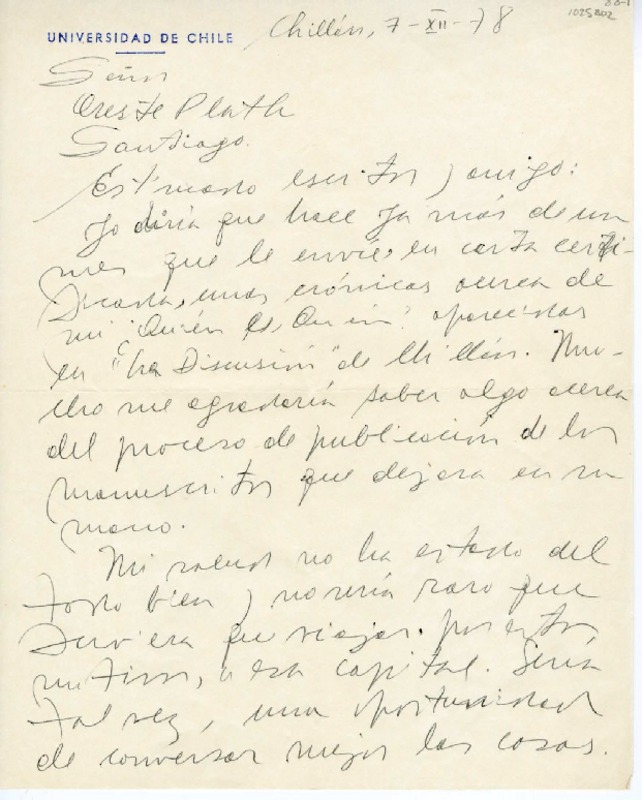 1025802
UNIVERSIDAD DE CHILE
Chillán, 7-XII-78
Señor
Oreste Plath
Santiago.
Estimado escritor y amigo:
Yo diría que hace ya más de un
mes que le envié, en carta certifi-
cada, unas crónicas acerca de
mi "Quién Es Quién" aparecidas
en "La Discusión" de Chillán. Mu-
cho me agradaría saber algo acerca
del proceso de publicación de los
manuscritos que dejara en su
mano.
Mi salud no ha estado del
todo bien y no sería raro que
tuviera que viajar, por estos
motivos, a esa capital. Sería
tal vez, una oportunidad
de conversar mejor las cosas.